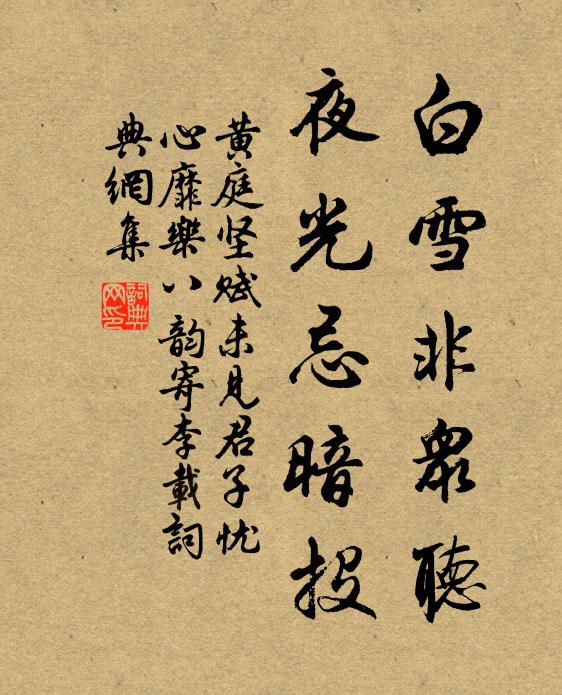 白雪非衆聽
夜光忌暗投
黄庭坚赋未見君子忧
心靡樂八韵寄李載詞
典網集
詞典
网印